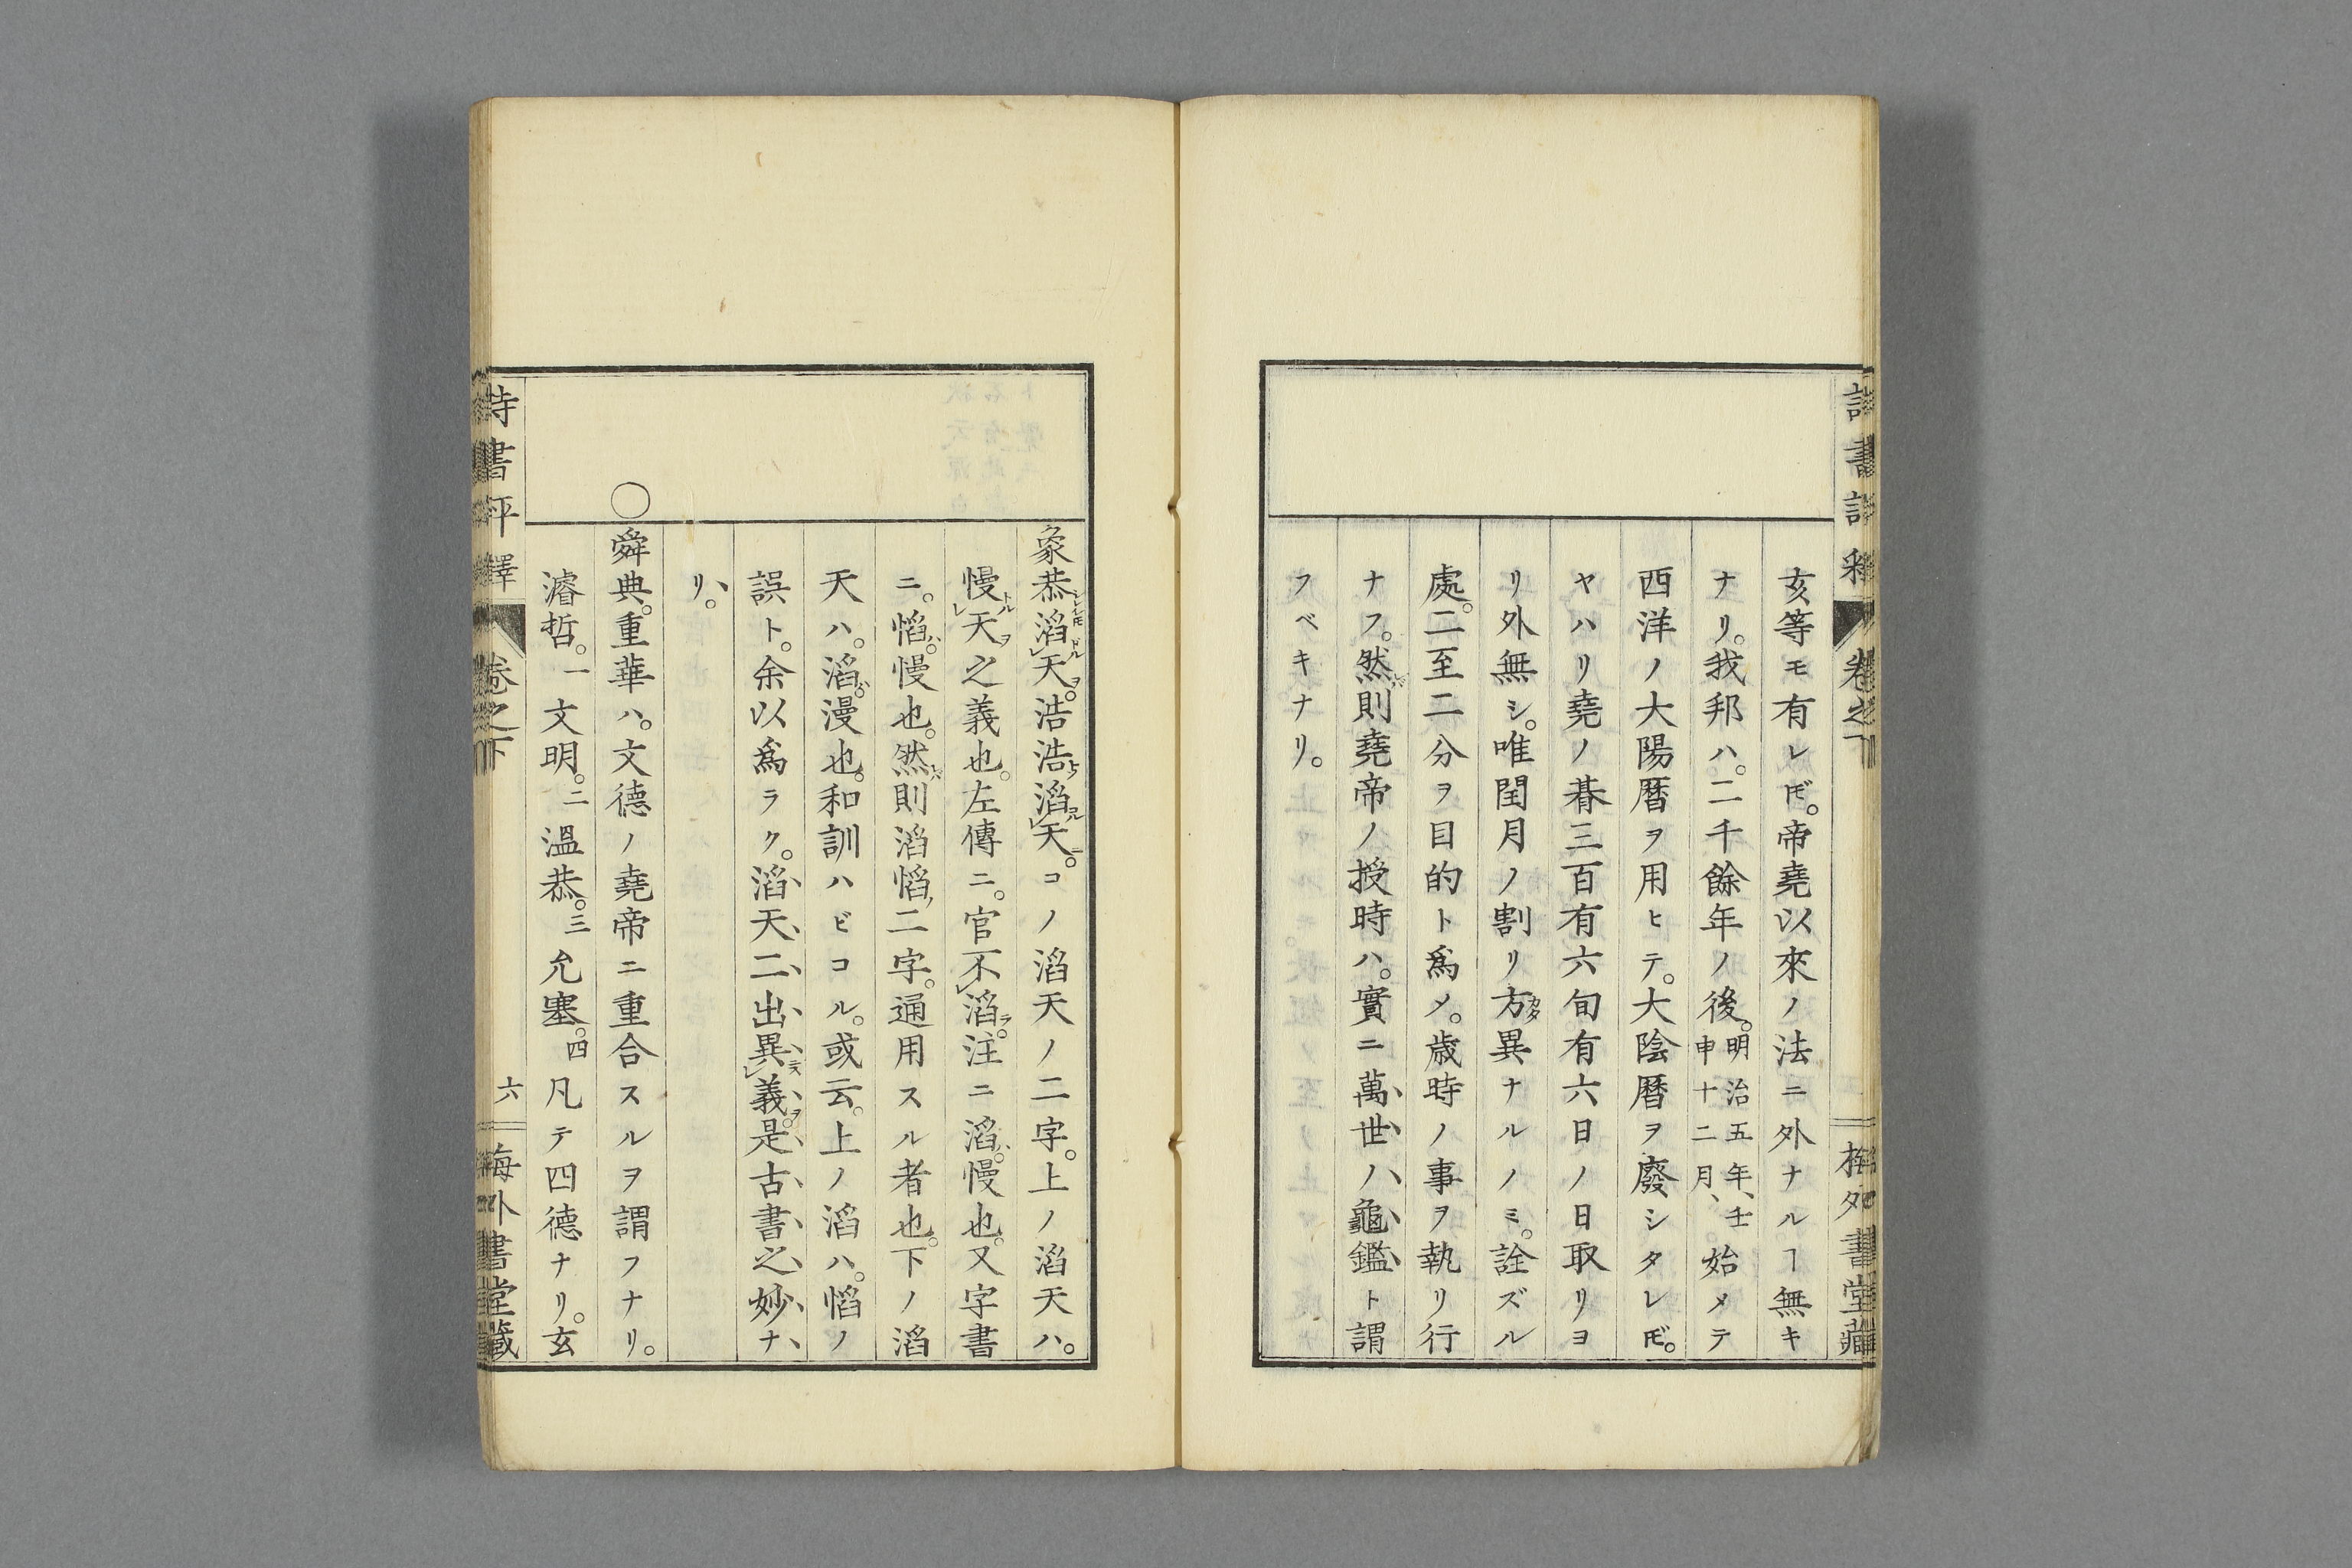 亥等モ有レ𪜈。帝堯以來ノ法ニ外ナルヿ無キ
ナリ。我邦ハ。二千餘年ノ後。明治五年、壬申十二月、始メテ
西洋ノ大陽曆ヲ用ヒテ。大陰曆ヲ廢シタレ𪜈。
ヤハリ堯ノ朞三百有六旬有六日ノ日取リヨ
リ外無シ。唯閏月ノ割リ方異ナルノミ。詮ズル
處。二至二分ヲ目的ト爲メ。歲時ノ事ヲ執リ行
ナフ。然則堯帝ノ授時ハ。實ニ萬世ノ龜鑑ト謂
フベキナリ。
象恭滔天。浩浩滔天。コノ滔天ノ二字。上ノ滔天ハ。
慢天之義也。左傳ニ。官不滔。注ニ滔。慢也。又字書
ニ。慆。慢也。然則滔慆二字。通用スル者也。下ノ滔
天ハ。滔漫也。和訓ハビコル。或云。上ノ滔ハ。慆ノ
誤ト。余以爲ラク。滔天二出異義。是古書之妙ナ
リ。
○舜典。重華ハ。文德ノ堯帝ニ重合スルヲ謂フナリ。
濬哲。一文明。二溫恭。三允塞。四凡テ四德ナリ。玄
詩書評釋 卷之下 六 梅外書堂藏